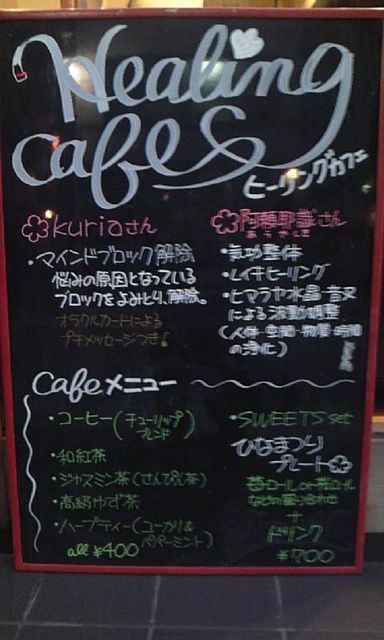 Healing
Cafe
ヒーリングカフェ
kuriaさん
・マインドブロック解除
悩みの原因となっている
ブロックをよみとり、解除。
オラクルカードによる
プチメッセージつき!
さん
・気功整体
・レイキヒーリング
・ヒマラヤ水晶音叉
による波動調整
(人体・空間・物質・時間
の浄化)
Cafeメニュー
・コーヒー(チューリップ
ブレンド)
・和紅茶
・ジャスミン茶(せんぴん茶)
・高級ゆず茶
・ハーブティー(ユーカリ&
ペパーミント)
all ¥400
・SWEETS set
ひなまつり
プレート
ロール or ロール
などの盛り合わせ
+
ドリンク
¥700